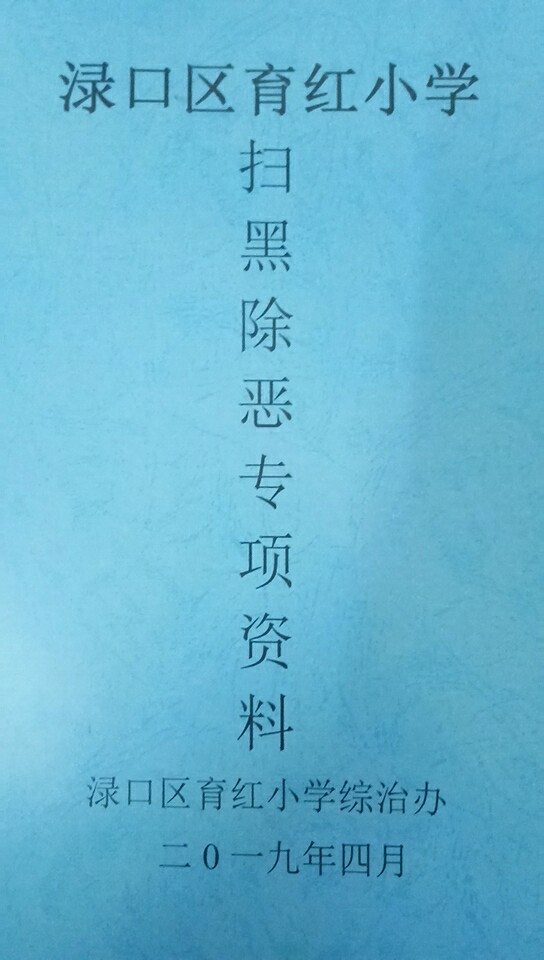 渌口区育红小学
扫黑除恶专项资料
渌口区育红小学综治办
二0一九年四月